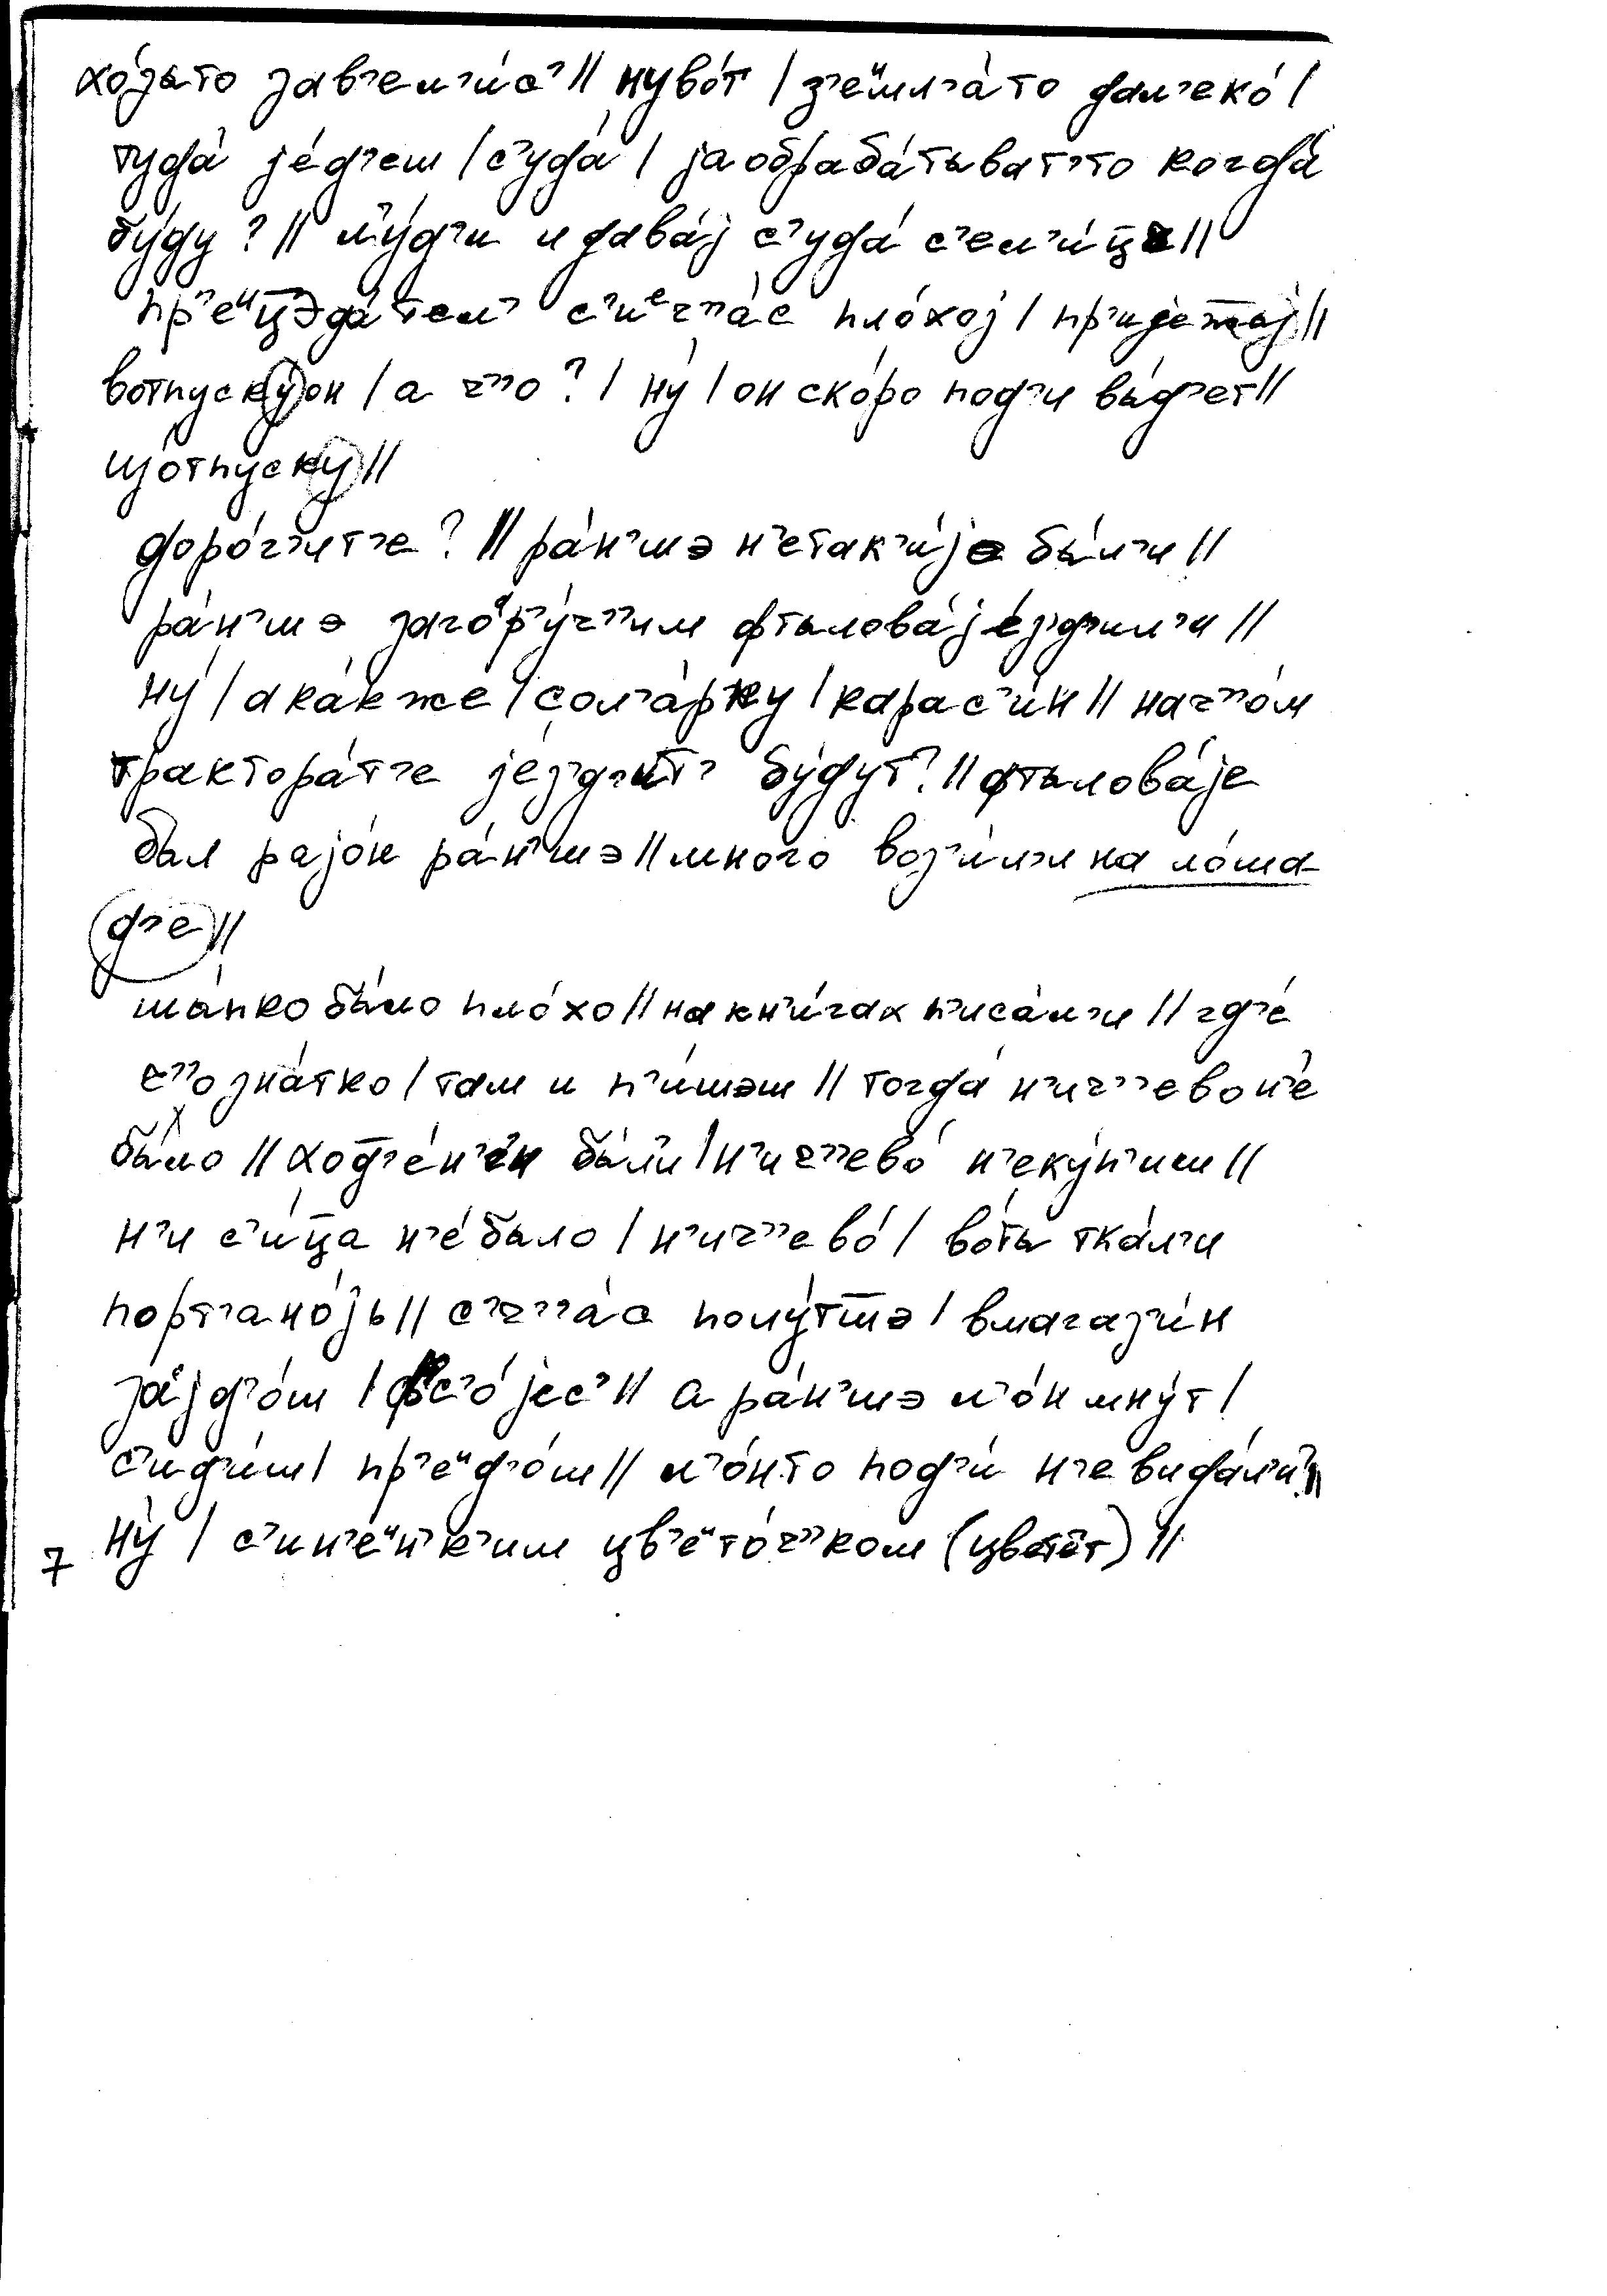 хо́зыто зав'ел'и́с' // нуво́т / з'еᶦмл'а́то дал'еко́ /
туда́ jе́д'еш / с'уда́ / jаобраба́тыват'то когда́
бу́ду ? // л'у́д'и и дава́j с'уда́ с'ел'и́ц̅а //
пр'еᶦц̅эда́тел' с'иᵉч''а́с пло́хоj / пр'иjе́ж̅ыj //
вотпуску́он / а ч''о ? / ну́ / он ско́ро под'и вы́д'ет //
щ́о́тпуску //
доро́г'ит'е ? // ра́н'шэ н'етак'и́jэ бы́л'и //
ра́н'шэ загор'у́ч''им фтылова́jе́зд'ил'и //
ну́ / ака́кже / сол'а́рку / карас'и́н // нач''о́м
трактора́т'е jе́зд'ит' бу́дут ? // фтылова́jе
был раjо́н ра́н'шэ // много воз'и́л'и на ло́ша-
д'е //
ша́пко бы́ло пло́хо // на кн'и́гах п'иса́л'и // гд'е́
ч''о зна́тко / там и п'и́шэш // тогда́ н'ич''евон'е́
было // ход'е́н'ек бы́л'и / н'ич''ево́ н'еку́п'иш //
н'и с'и́ц̅а н'е́было / н'ич''ево́ / во́ты тка́л'и
порт'ано́jь // с'ч''а́с полу́тш̅э / вмагаз'и́н
заjд'о́ш / фс'о́ jес' // а ра́н'шэ л'о́н мну́т /
с'ид'и́ш / пр'еᶦд'о́ш // л'о́нто под'и́ н'евида́л'и? //
ну́ / с'ин'е́н'к'им цв'еᶦто́ч''ком (цветёт) //
7